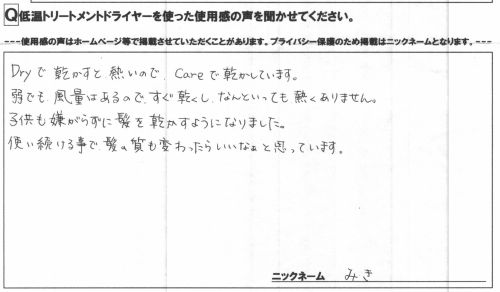 Q低温トリートメントドライヤーを使った使用感の声を聞かせてください。
---使用感の声はホームページ等で掲載させていただくことがあります。プライバシー保護のため掲載はニックネームとなります。---
Dryで乾かすと熱いので、Careで乾かしています。
弱でも風量はあるので、すぐ乾くし、なんといっても熱くありません。
子供も嫌がらずに髪を乾かすようになりました。
使い続ける事で、髪の質も変わったらいいなぁと思っています。
ニックネーム みき